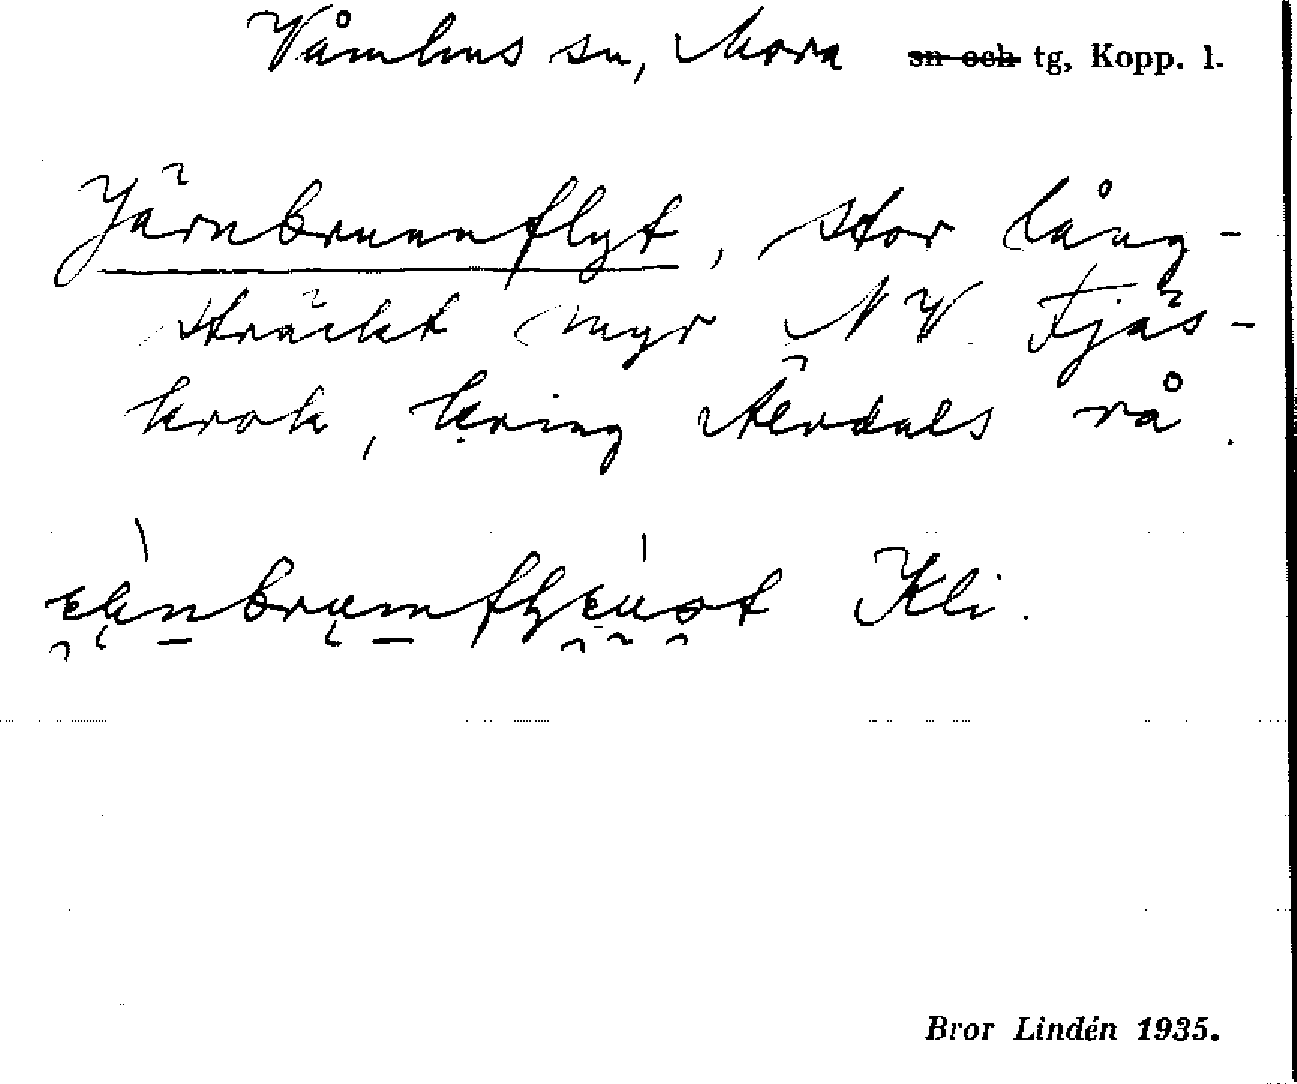 Våmhus sn, Mora sn och tg, Kopp. l.
Järnbrunnflyt, stor lång-
sträckt myr NV Fjäs-
krok, kring Älvdals rå.
Kli.
Bror Lindén 1935.